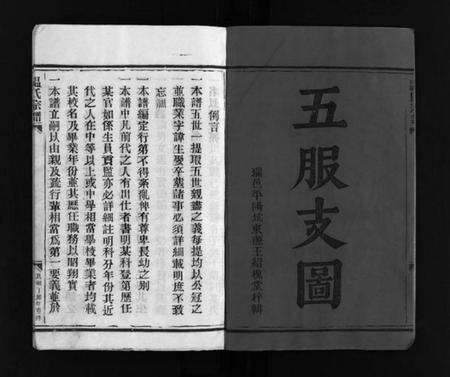 五服支圖
例言
一本譜五世一提取五世親盡之義每提均以公冠之
並職業字諱生娶卒葬諸事必須詳細載明庶不致
忘涸
一本譜編定行第不得紊亂俾有尊卑長幼之別
一本譜中凡前代之人有出仕者書明某科登第歷任
某官如係生員貢監亦必詳細註明科分年份其近
代之人在中等以上或中學相當學校畢業者均載
其校名及畢業年份並其歷任職務以昭翔實
一本譜立嗣以由親及疏行輩相當爲第一要義並於
溫氏宗譜